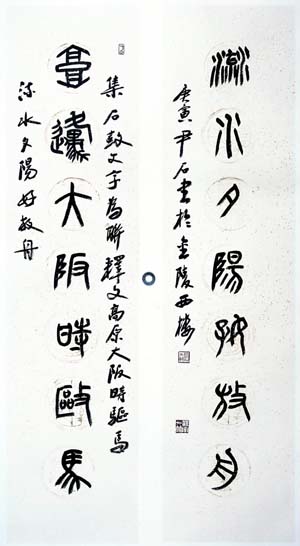 流水夕陽好放舟
庚寅尹石書於金陵西樓
集石鼓文字為聯釋文高原大阪時驅馬
高邍大阪時敺馬
流水夕陽好放舟